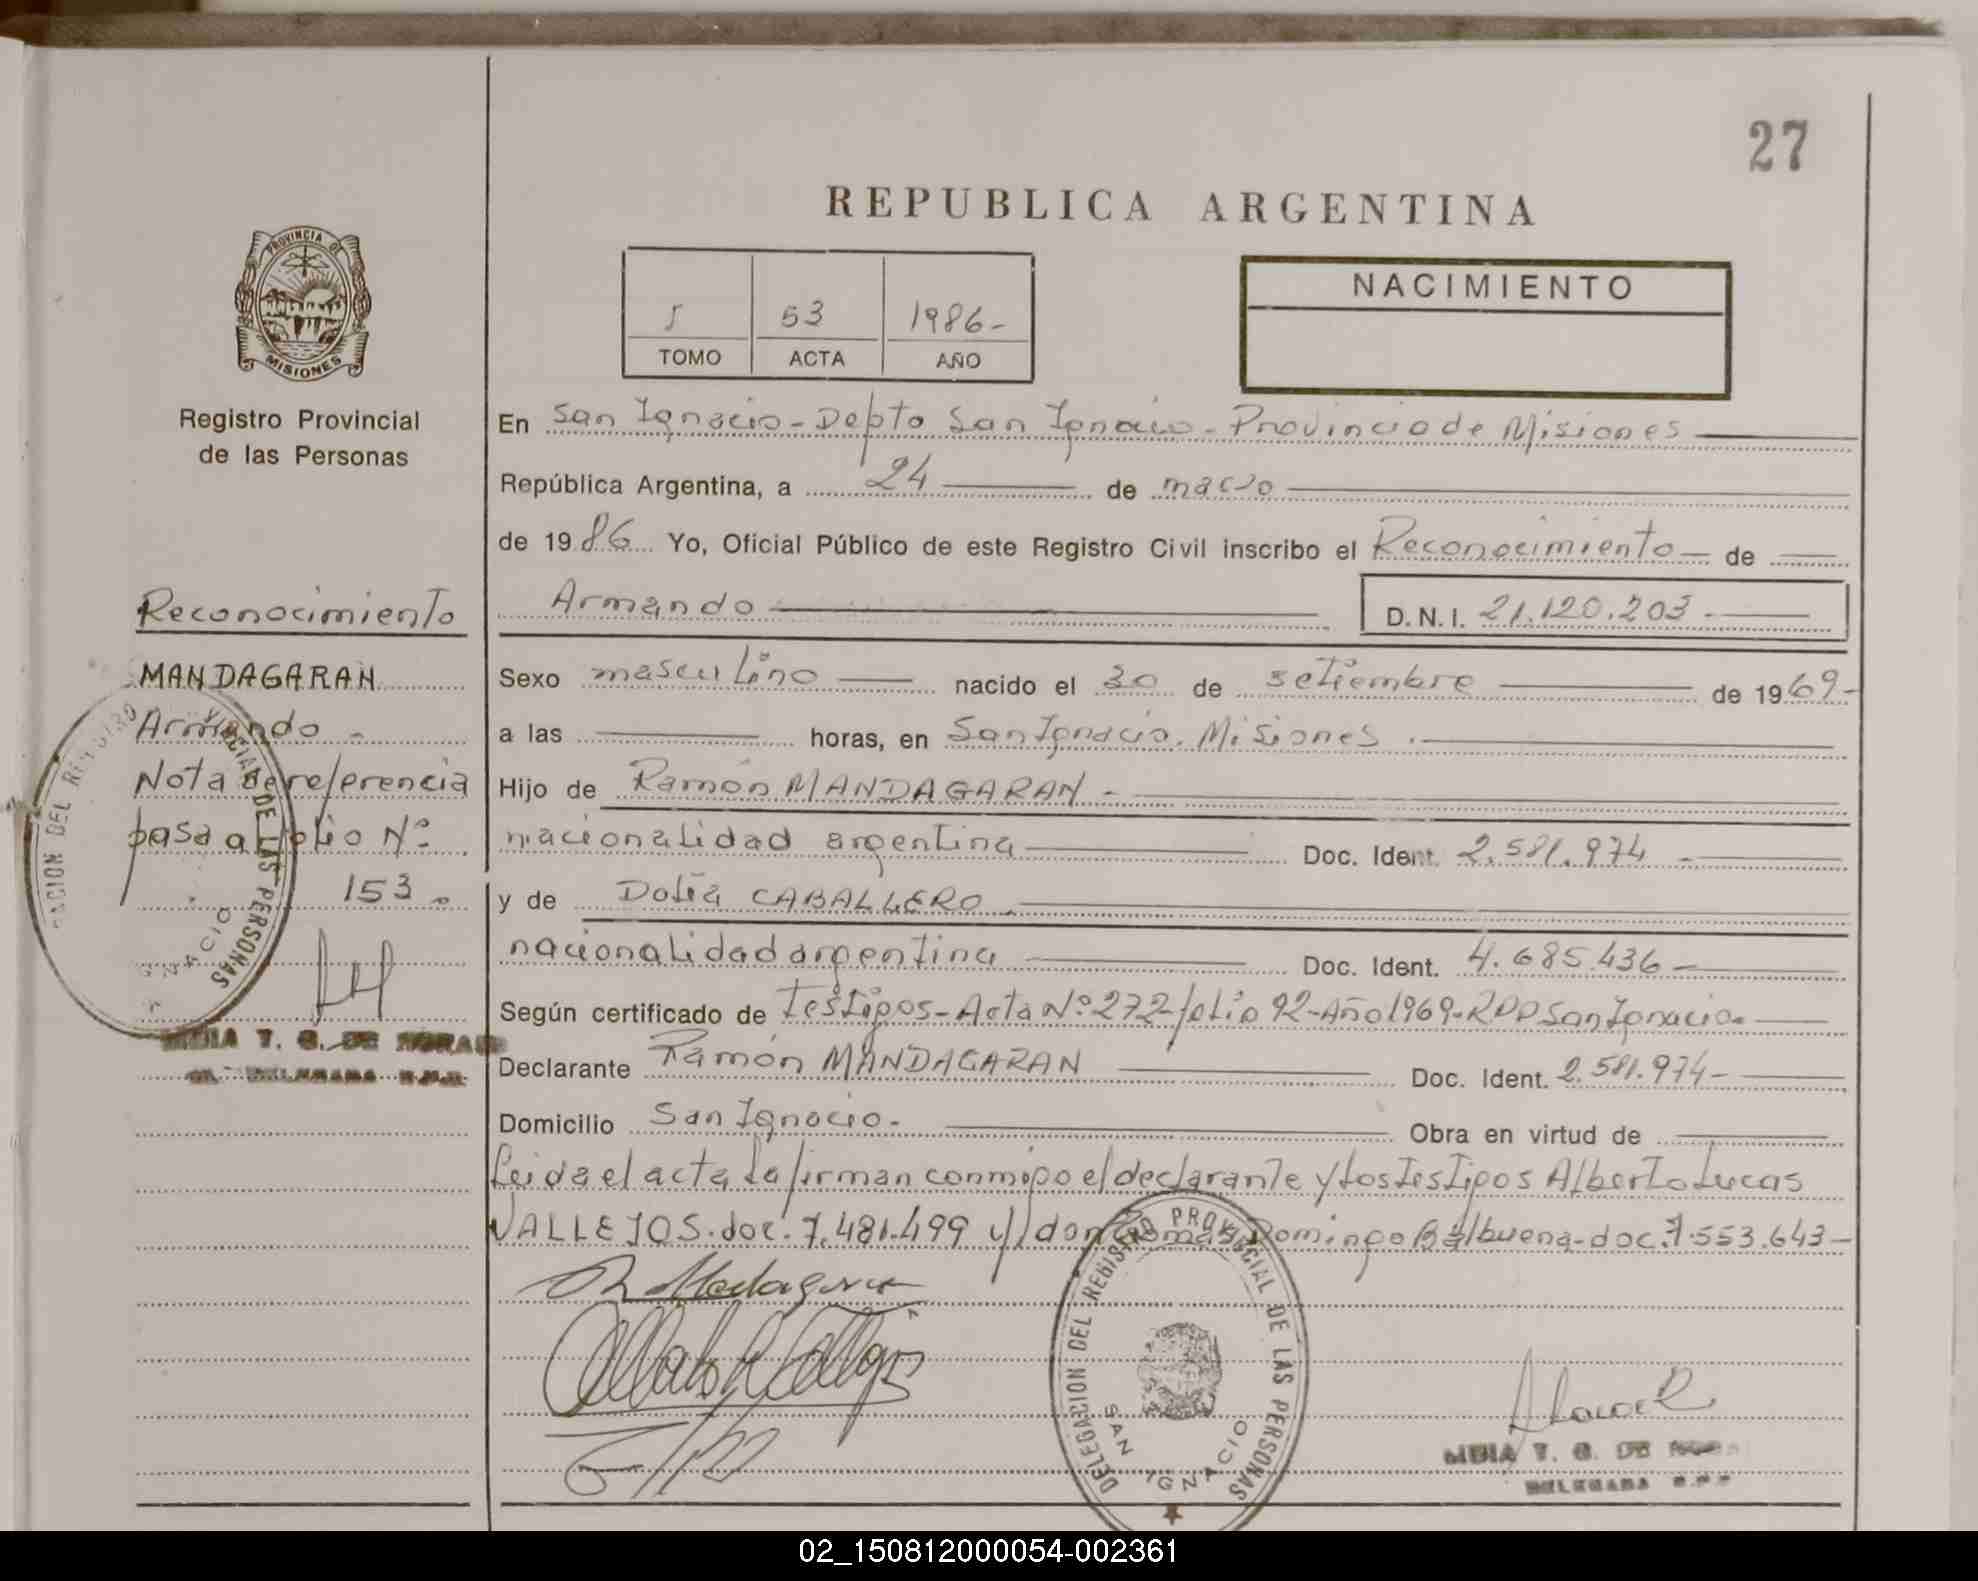 27
REPUBLICA ARGENTINA
PROVINCIA DE
MISIONES
Registro Provincial
de las Personas
5 53 1986-
TOMO ACTA AÑO
NACIMIENTO
En San Ignacio - Depto San Ignacio - Provincia de Misiones
República Argentina, a 24 de marzo
de 1986 Yo, Oficial Público de este Registro Civil inscribo el Reconocimiento de
Armando D.N.I. 21.120.203
Sexo masculino nacido el 30 de setiembre de 1969-
a las horas, en San Ignacio. Misiones.
Hijo de Ramón MANDAGARAN -
nacionalidad argentina Doc. Ident. 2.581.974
y de CABALLERO.
nacionalidad argentina Doc. Ident. 4.685.436
Según certificado de testigos - Acta Nº 272 - folio 92 - Año 1969 - RPP San Ignacio.
Declarante Ramón MANDAGARAN Doc. Ident. 2.581.974-
Domicilio San Ignacio. Obra en virtud de
Leida el acta la firman conmigo el declarante y los testigos Alberto Lucas
VALLEJOS. doc. 7.481.499 y don Domingo Balbuena - doc. 7.553.643-
DELEGACION DEL REGISTRO PROVINCIAL DE LAS PERSONAS
SAN IGNACIO
T. G. DE
DELEGADA R.P.P.
Reconocimiento
MANDAGARAN
Armando -
Nota de referencia
pasa a folio Nº
153.
CION DEL REGISTRO DE LAS PERSONAS
GNACIO
T. G. DE MORA
DELEGADA R.P.P.
02_150812000054-002361